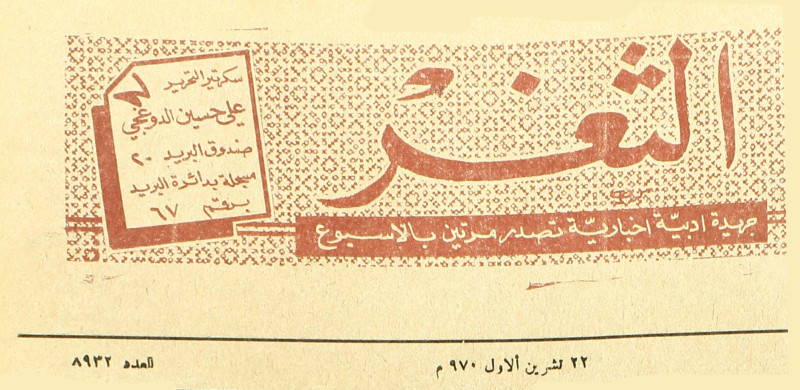 الثغر
جريدة ادبيّة اخباريّة تصدر مرتين بالاسبوع
سكرتير التحرير
علي حسين الدوغجي
صندوق البريد ٢٠
مسجلة بدائرة البريد
برقم ٦٧
٢٢ تشرين ألاول ٩٧٠ م
العدد ٨٩٣٢